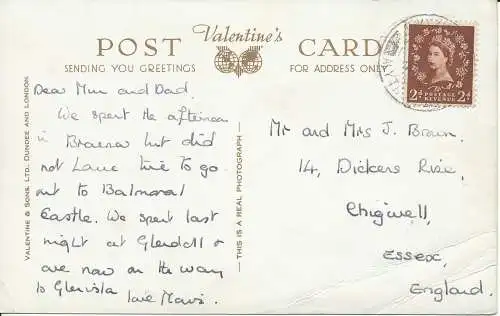 POST Valentine's CARD
SENDING YOU GREETINGS
FOR ADDRESS ONLY
Dear Mum and Dad.
We spent the afternoon
in Braemar but did
not have time to go
out to Balmoral
Castle. We spent last
night at Glendoll &
are now on the way
to Glenisla love Mavis.
VALENTINE & SONS. LTD. DUNDEE AND LONDON
— THIS IS A REAL PHOTOGRAPH —
2D POSTAGE REVENUE 2D
Mr and Mrs J. Brown.
14, Dickens Rise,
Chigwell,
Essex,
England.